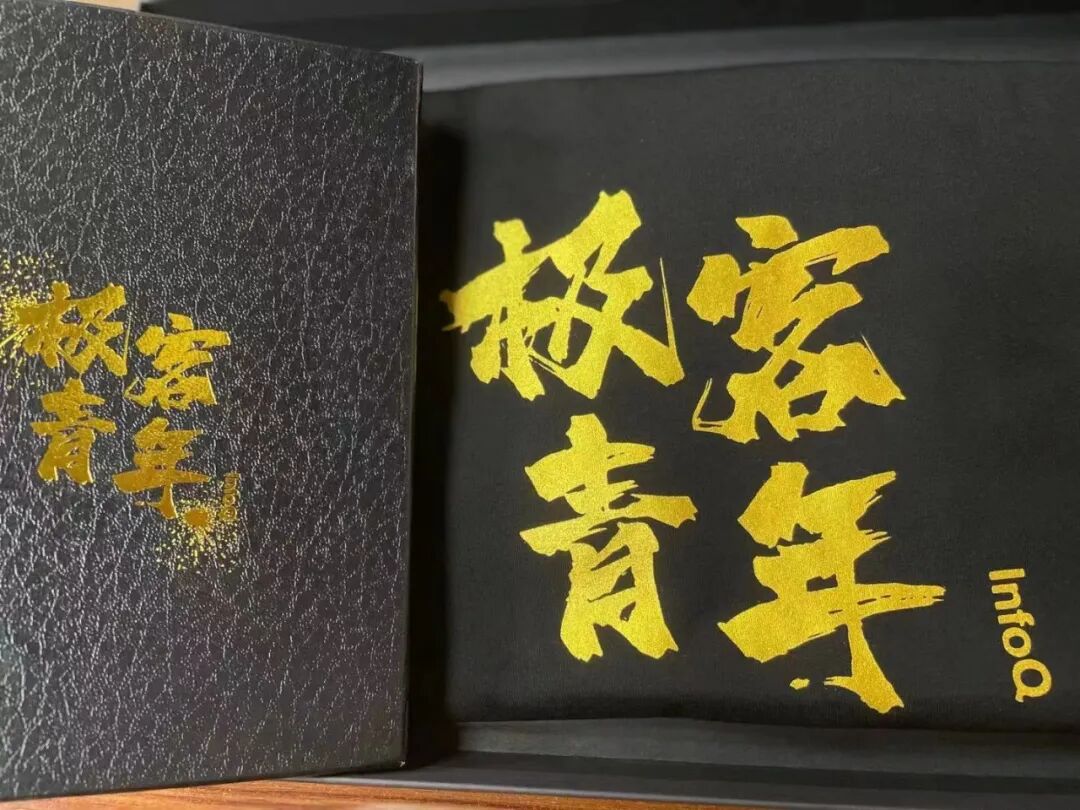 极客
青年
InfoQ
极客
青年
InfoQ